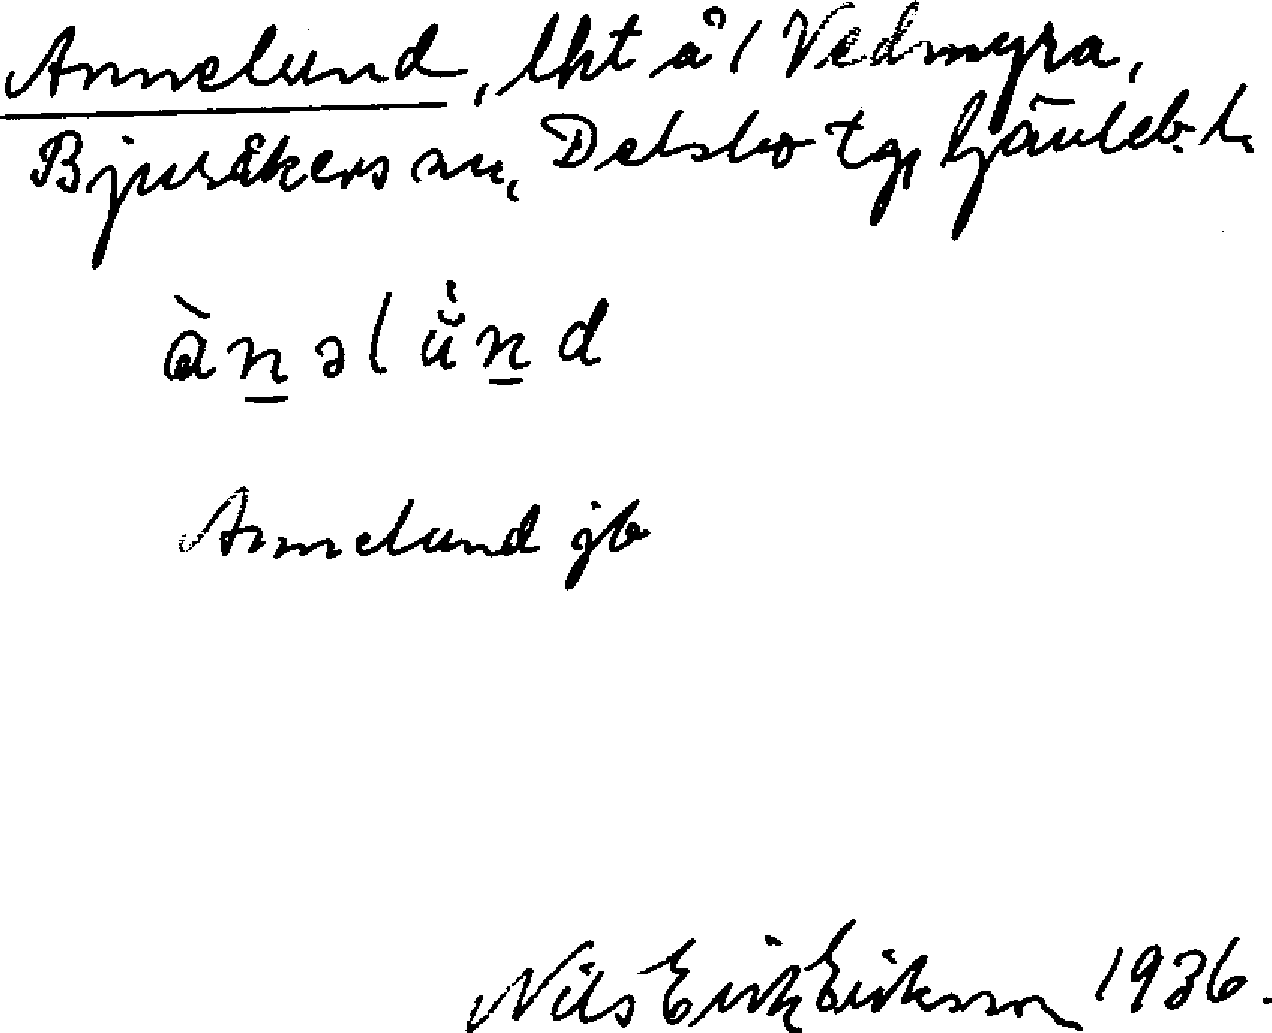 Annelund, lht å 1 Vedmyra,
Bjuråkers sn, Delsbo tg, Gävleb. l.
ànəlùnd
Annelund jb
Nils Erik Eriksson 1936.